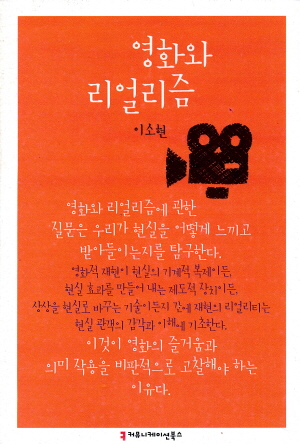 영화와
리얼리즘
이소현
영화와 리얼리즘에 관한
질문은 우리가 현실을 어떻게 느끼고
받아들이는지를 탐구한다.
영화적 재현이 현실의 기계적 복제이든,
현실 효과를 만들어 내는 제도적 장치이든,
상상을 현실로 바꾸는 기술이든지 간에 재현의 리얼리티는
현실 관객의 감각과 이해에 기초한다.
이것이 영화의 즐거움과
의미 작용을 비판적으로 고찰해야 하는
이유다.
커뮤니케이션북스